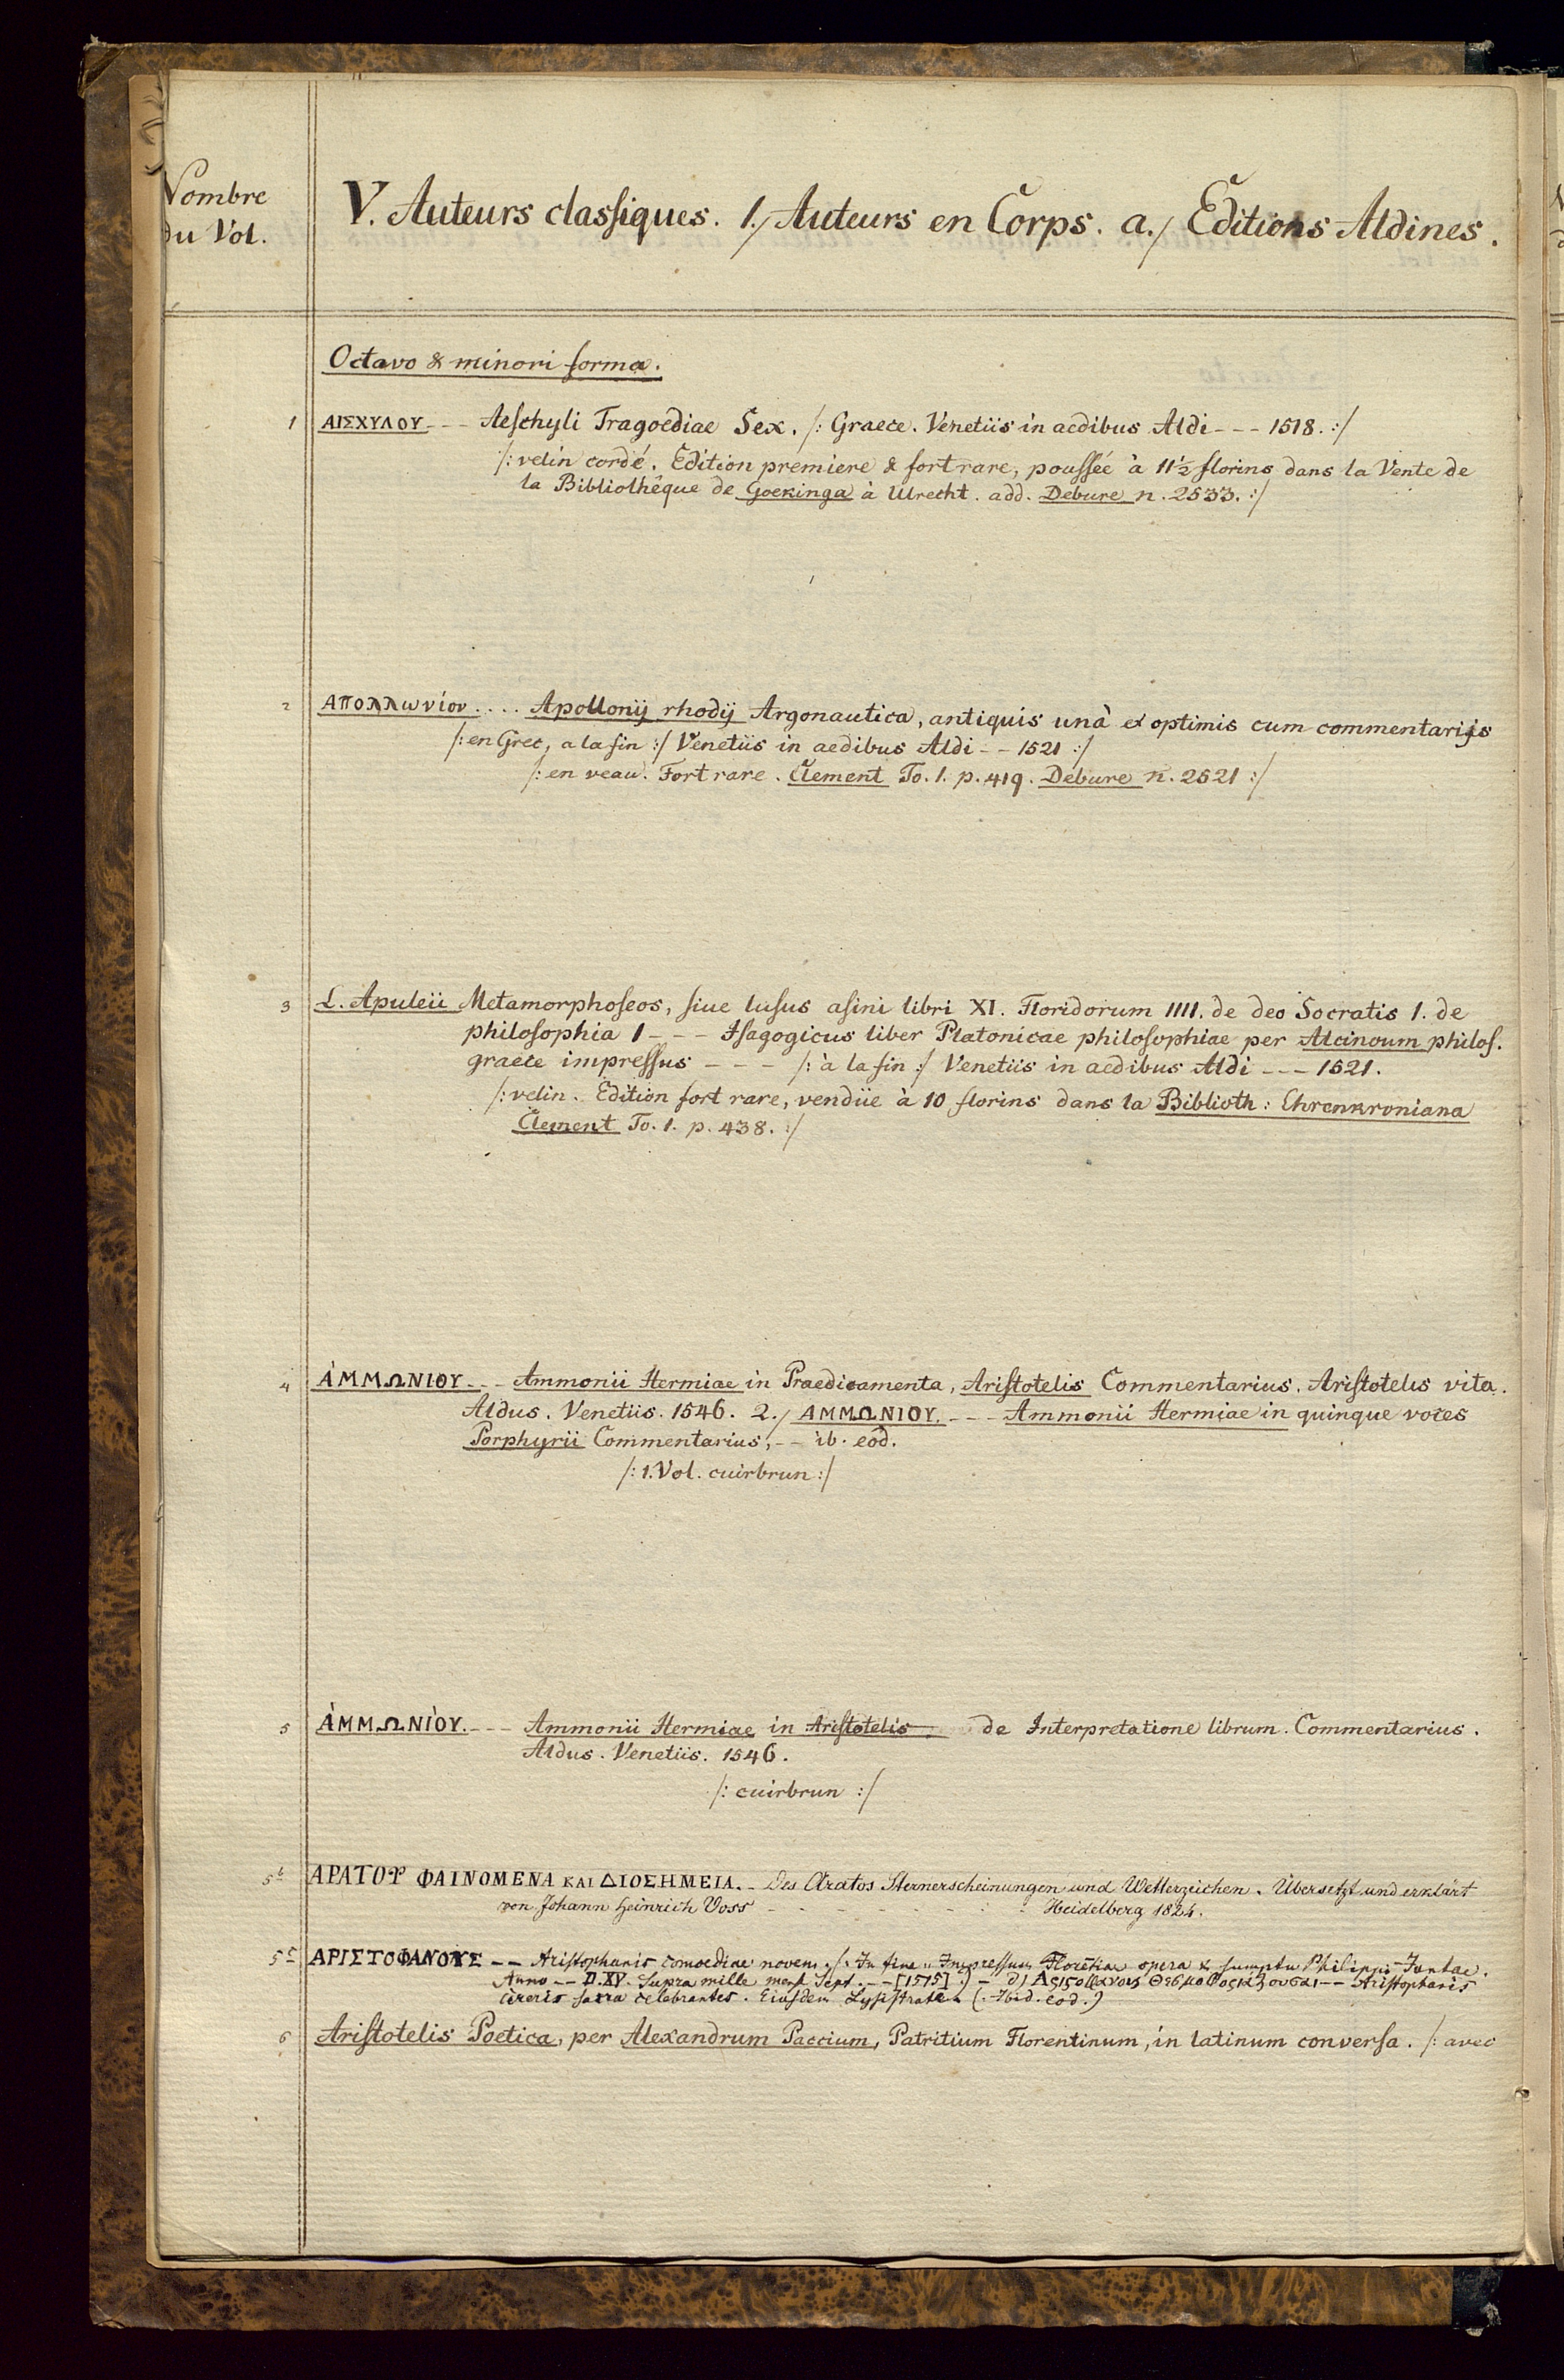 Nombre
du Vol.
V. Auteurs classiques. 1./ Auteurs en Corps. a./ Editions Aldines.
Octavo & minori forma.
1 ΑΙΣΧΥΛΟΥ --- Aeschyli Tragoediae Sex. /: Graece. Venetiis in aedibus Aldi --- 1518. :/
/: velin cordé. Edition premiere & fort rare, poussée à 11½ florins dans la Vente de
la Bibliothéque de Goekinga à Utrecht. add. Debure n. 2533. :/
2 Απολλωνίου .... Apollonij rhodij Argonautica, antiquis unà et optimis cum commentarijs
/: en Grec, a la fin :/ Venetiis in aedibus Aldi -- 1521 :/
/: en veau. Fort rare. Clement To. 1. p. 419. Debure n. 2521 :/
3 L. Apuleii Metamorphoseos, siue lusus asini libri XI. Floridorum IIII. de deo Socratis 1. de
philosophia 1 --- Isagogicus liber Platonicae philosophiae per Alcinoum philos.
graece impressus --- /: à la fin :/ Venetiis in aedibus Aldi --- 1521.
/: velin. Edition fort rare, vendüe à 10 florins dans la Biblioth: Ehrenkroniana
Clement To. 1. p. 438. :/
4 ἈΜΜΩΝΙΟΥ --- Ammonii Hermiae in Praedicamenta, Aristotelis Commentarius. Aristotelis vita.
Aldus. Venetiis. 1546. 2./ ΑΜΜΩΝΙΟΥ. --- Ammonii Hermiae in quinque voces
Porphyrii Commentarius, -- ib. eod.
/: 1. Vol. cuir brun :/
5 ἈΜΜΩΝΊΟΥ. --- Ammonii Hermiae in Aristotelis de Interpretatione librum. Commentarius.
Aldus. Venetiis. 1546.
/: cuir brun :/
5b ΑΡΑΤΟΥ ΦΑΙΝΟΜΕΝΑ ΚΑΙ ΔΙΟΣΗΜΕΙΑ. - Des Aratos Sternerscheinungen und Wetterzeichen. Übersetzt und erklärt
von Johann Heinrich Voss - - - - - - - Heidelberg 1824.
5c ΑΡΙΣΤΟΦΑΝΟΥΣ -- Aristophanis comoediae novem. /: In fine " Impressum Florētiae opera & sumptu Philippi Juntae.
Anno -- D.XV. supra mille mens Sept. -- [1515] :) - -- Aristophanis
cereris sacra celebrantes. Eiusdem Lysistrate (. Ibid. eod.)
6 Aristotelis Poetica, per Alexandrum Paccium, Patritium Florentinum, in latinum conversa. /: avec